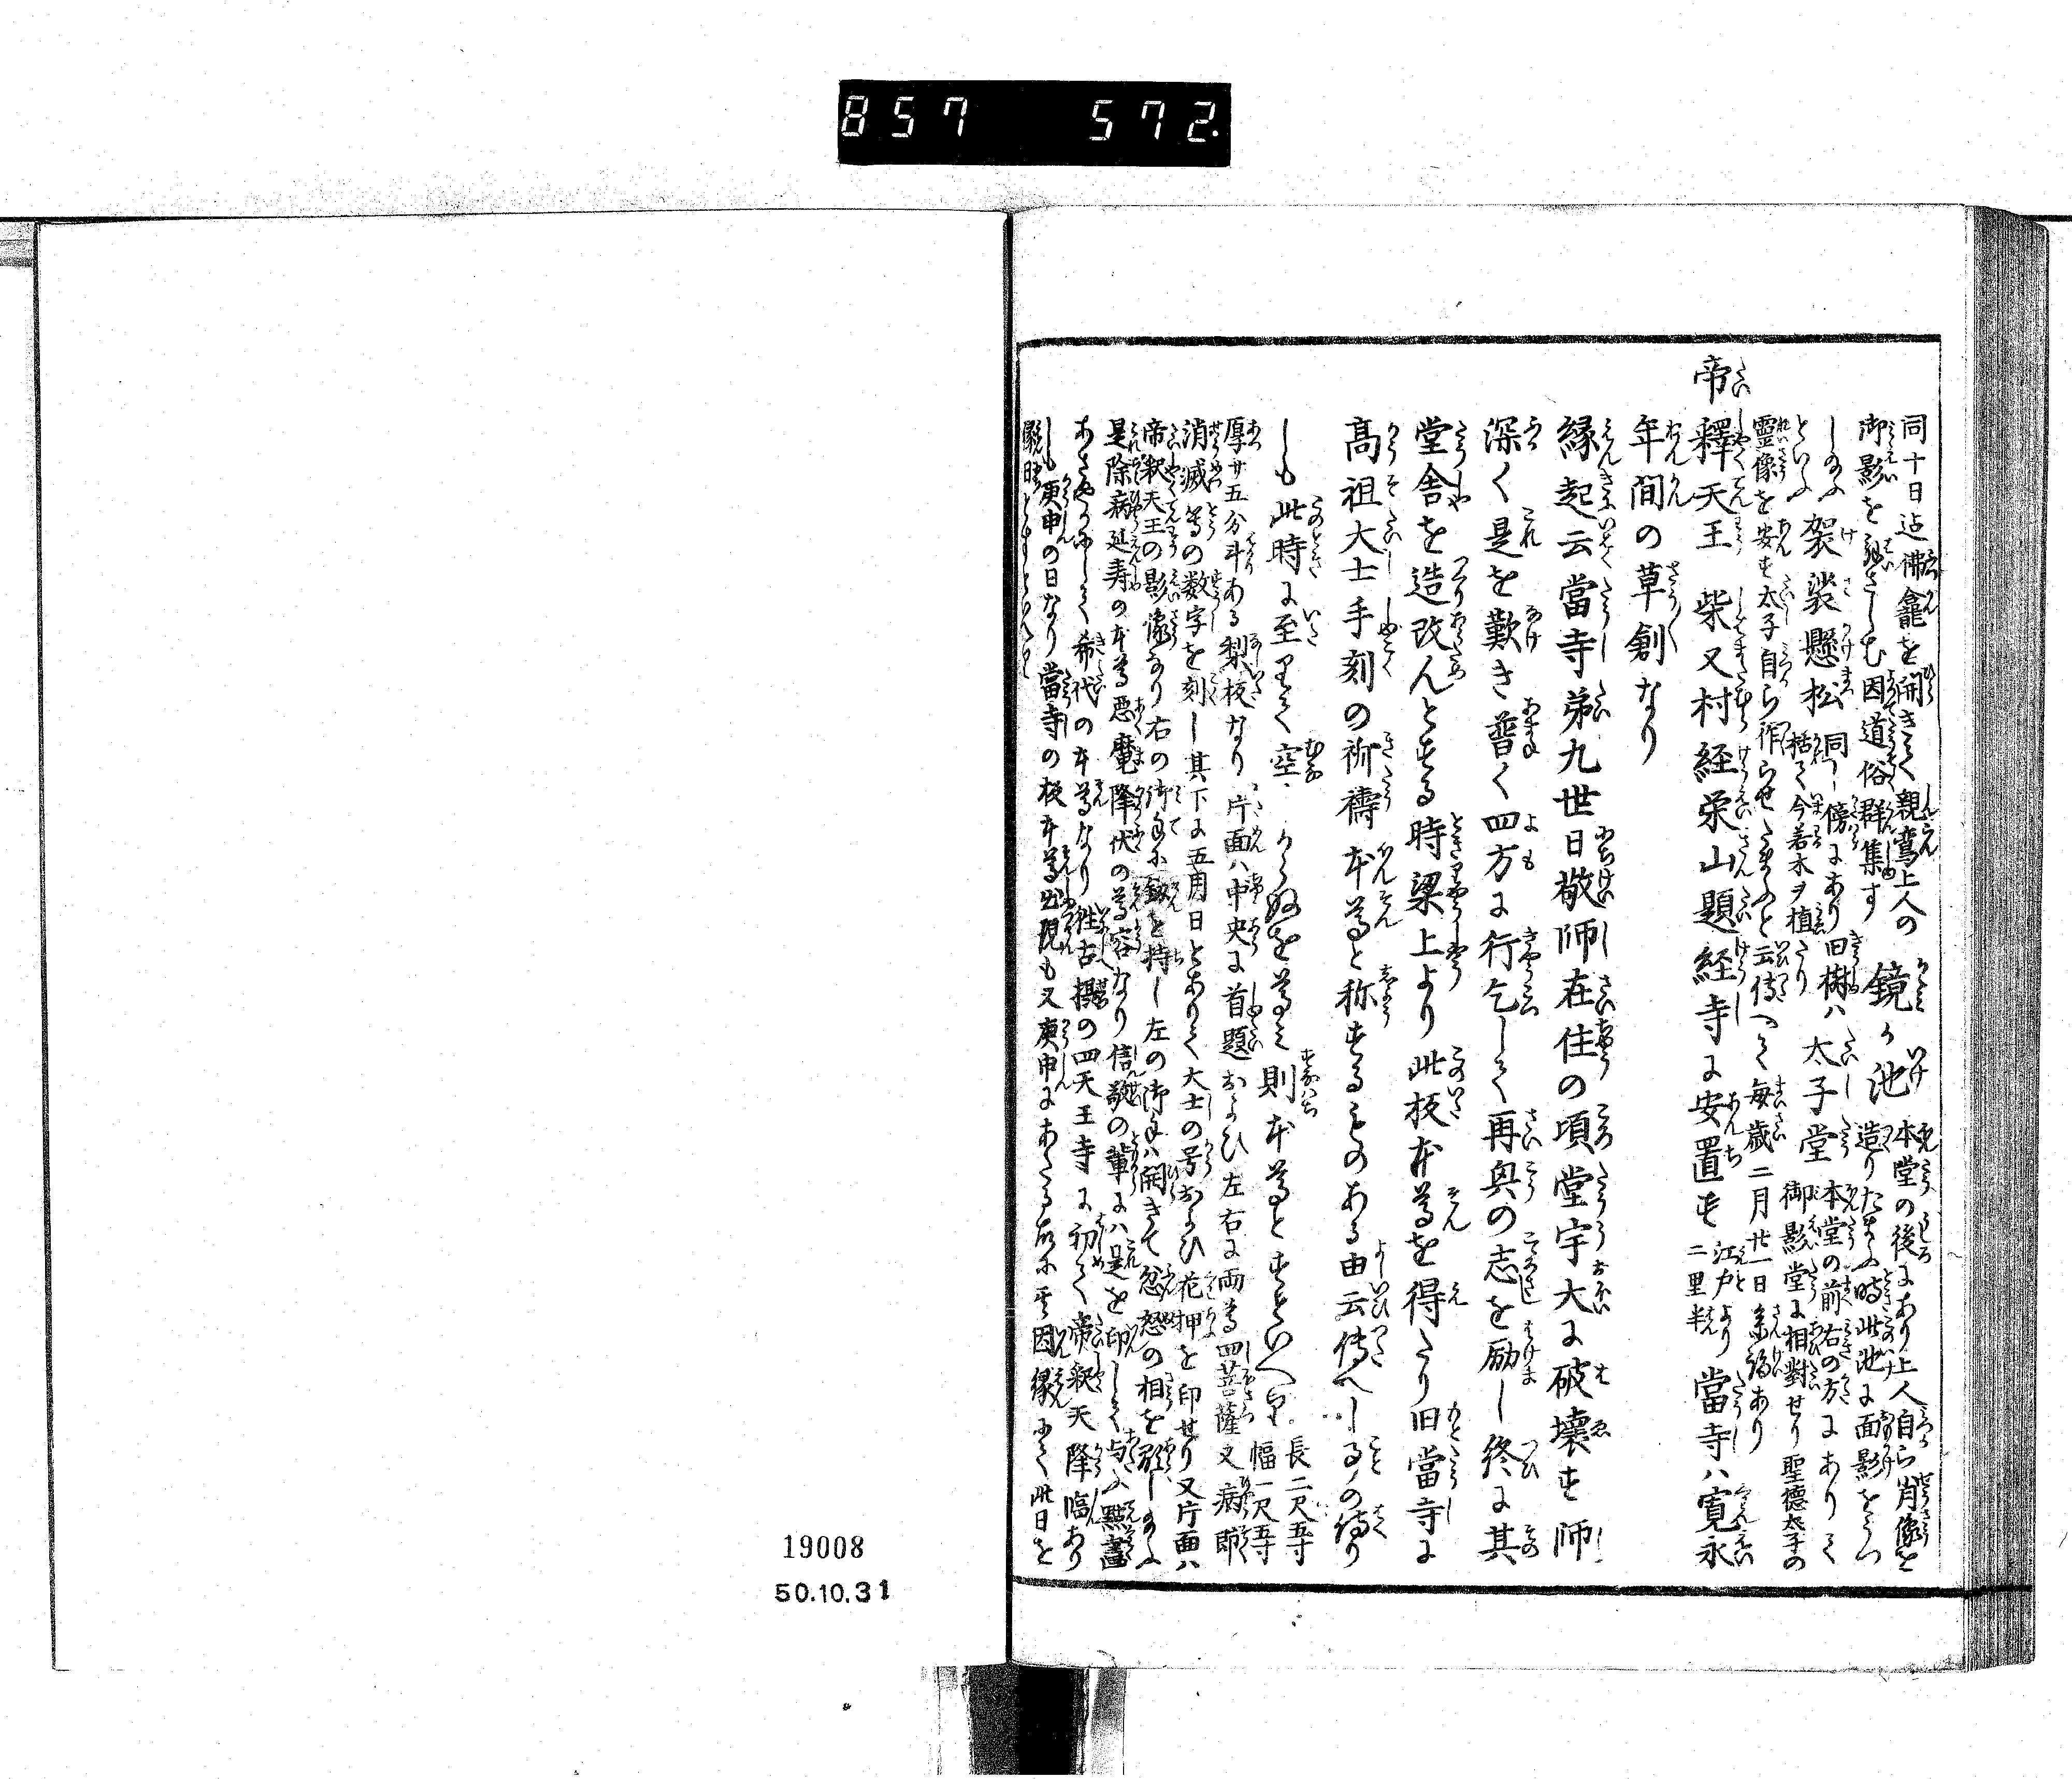 857 572.
同十日迄佛龕を開きて親鸞上人の
御影を拜さしむ因て道俗群集す
鏡か池
本堂の後にあり上人自ら肖像を
造りたまふ時此池に面影をうつ
しぬふ
といふ
袈裟懸松
同し傍にあり旧樹ハ
枯て今若木ヲ植たり
太子堂
本堂の前右の方にありて
御影堂に相對せり聖徳太子の
靈像を安す太子自ら作らせたまふと云傳へて毎歳二月廿一日参詣あり
帝釋天王 柴又村経栄山題経寺に安置す
江戸より
二里半
當寺ハ寛永
年間の草創なり
縁起云當寺第九世日敬師在住の頃堂宇大に破壊す師
深く是を歎き普く四方に行乞して再興の志を励し終に其
堂舎を造改んとする時梁上より此板本尊を得たり旧當寺に
高祖大士手刻の祈祷本尊と称するものある由云傳へしことの偽り
しも此時に至りて空からぬを尊み則本尊とすといへり
長二尺五寸
幅一尺五寸
厚サ五分斗ある梨板なり片面ハ中央に首題およひ左右に両尊四菩薩又病即
消滅等の数字を刻し其下に五月日とありて大士の号および花押を印せり又片面ハ
帝釈天王の影像なり右の御手に劔を持し左の御手ハ開きて忿怒の相を
是除病延寿の本尊悪魔降伏の尊容なり信敬の輩にハ是を印して与ふ點畫
あさやかにして希代の本尊なり往古攝の四天王寺に初て帝釈天降臨あり
しも庚申の日なり當寺の板本尊出現も又庚申にあたる因縁にて此日を
縁日と
19008
50.10.31